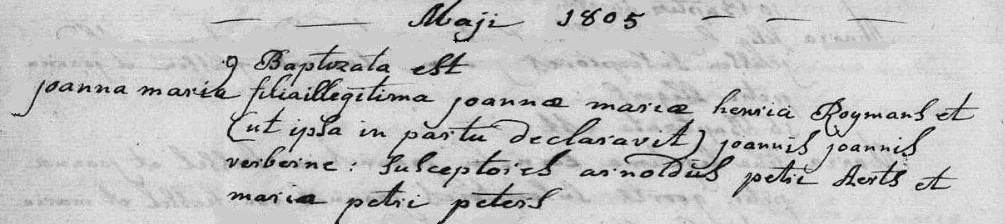 Maji 1805
9 Baptozata est
joanna maria filia illegitima joannæ mariæ henrici Roymans et
(ut ipsa in partu declaravit) joannis joannis
verberne : susceptores arnoldus petri Aerts et
maria petri peters